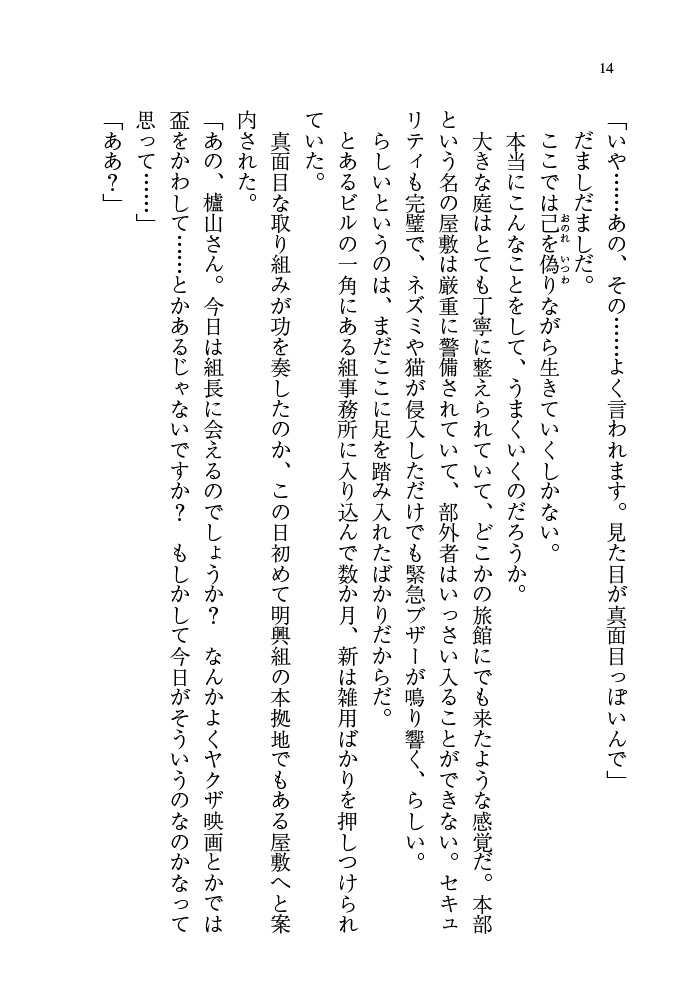 14
「いや……あの、その……よく言われます。見た目が真面目っぽいんで」
だましだましだ。
ここでは己を偽りながら生きていくしかない。
おのれ いつわ
本当にこんなことをして、うまくいくのだろうか。
大きな庭はとても丁寧に整えられていて、どこかの旅館にでも来たような感覚だ。本部
という名の屋敷は厳重に警備されていて、部外者はいっさい入ることができない。セキュ
リティも完璧で、ネズミや猫が侵入しただけでも緊急ブザーが鳴り響く、らしい。
らしいというのは、まだここに足を踏み入れたばかりだからだ。
とあるビルの一角にある組事務所に入り込んで数か月、新は雑用ばかりを押しつけられ
ていた。
真面目な取り組みが功を奏したのか、この日初めて明興組の本拠地でもある屋敷へと案
内された。
「あの、櫨山さん。今日は組長に会えるのでしょうか？　なんかよくヤクザ映画とかでは
盃をかわして……とかあるじゃないですか？　もしかして今日がそういうのなのかなって
思って……」
「ああ？」